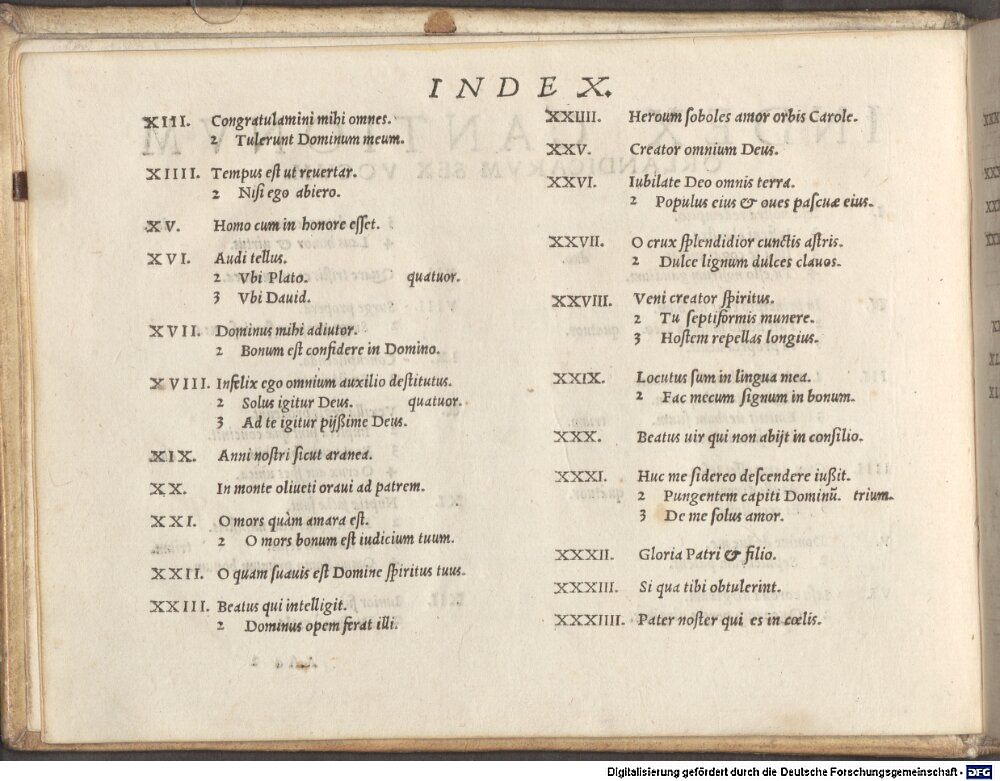 INDEX.
XIII. Congratulamini mihi omnes.
2 Tulerunt Dominum meum.
XIIII. Tempus est ut reuertar.
2 Nisi ego abiero.
XV. Homo cum in honore esset.
XVI. Audi tellus.
2 Vbi Plato. quatuor.
3 Vbi Dauid.
XVII. Dominus mihi adiutor.
2 Bonum est confidere in Domino.
XVIII. Infelix ego omnium auxilio destitutus.
2 Solus igitur Deus. quatuor.
3 Ad te igitur pijßime Deus.
XIX. Anni nostri sicut aranea.
XX. In monte oliueti oraui ad patrem.
XXI. O mors quàm amara est.
2 O mors bonum est iudicium tuum.
XXII. O quam suauis est Domine spiritus tuus.
XXIII. Beatus qui intelligit.
2 Dominus opem ferat illi.
XXIIII. Heroum soboles amor orbis Carole.
XXV. Creator omnium Deus.
XXVI. Iubilate Deo omnis terra.
2 Populus eius & oues pascuæ eius.
XXVII. O crux splendidior cunctis astris.
2 Dulce lignum dulces clauos.
XXVIII. Veni creator spiritus.
2 Tu septiformis munere.
3 Hostem repellas longius.
XXIX. Locutus sum in lingua mea.
2 Fac mecum signum in bonum.
XXX. Beatus uir qui non abijt in consilio.
XXXI. Huc me sidereo descendere iußit.
2 Pungentem capiti Dominū. trium.
3 De me solus amor.
XXXII. Gloria Patri & filio.
XXXIII. Si qua tibi obtulerint.
XXXIIII. Pater noster qui es in cœlis.
Digitalisierung gefördert durch die Deutsche Forschungsgemeinschaft - DFG